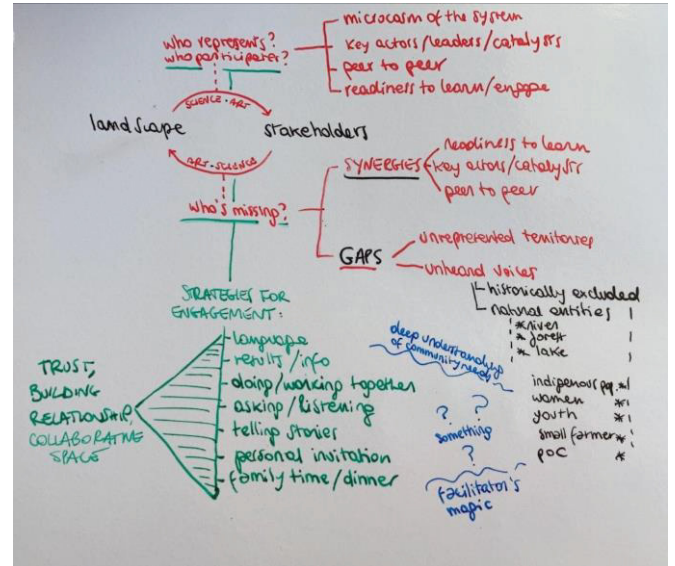 who represents?
who participates?
microcosm of the system
key actors/leaders/catalysts
peer to peer
readiness to learn/engage
SCIENCE-ART
landscape
stakeholders
ART-SCIENCE
who's missing?
SYNERGIES
readiness to learn
key actors/catalysts
peer to peer
GAPS
unrepresented territories
unheard voices
historically excluded
natural entities
* river
* forest
* lake
indigenous pop. *
women *
youth *
small farmer *
POC *
STRATEGIES FOR
ENGAGEMENT:
language
results/info
doing/working together
asking/listening
telling stories
personal invitation
family time/dinner
TRUST,
BUILDING
RELATIONSHIP,
COLLABORATIVE
SPACE
deep understanding
of community needs
? ?
something
?
facilitator's
magic